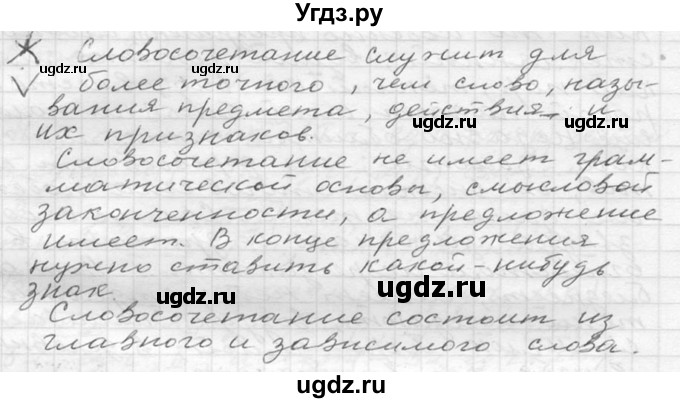 Угдз.ру
Словосочетание служит для
более точного, чем слово, назы-
вания предмета, действия и
их признаков.
Словосочетание не имеет грам-
матической основы, смысловой
законченности, а предложение
имеет. В конце предложения
нужно ставить какой-нибудь
знак.
Словосочетание состоит из
главного и зависимого слова.
ugdz.ru
ugdz.ru
ugdz.ru
ugdz.ru
ugdz.ru
ugdz.ru
ugdz.ru
ugdz.ru